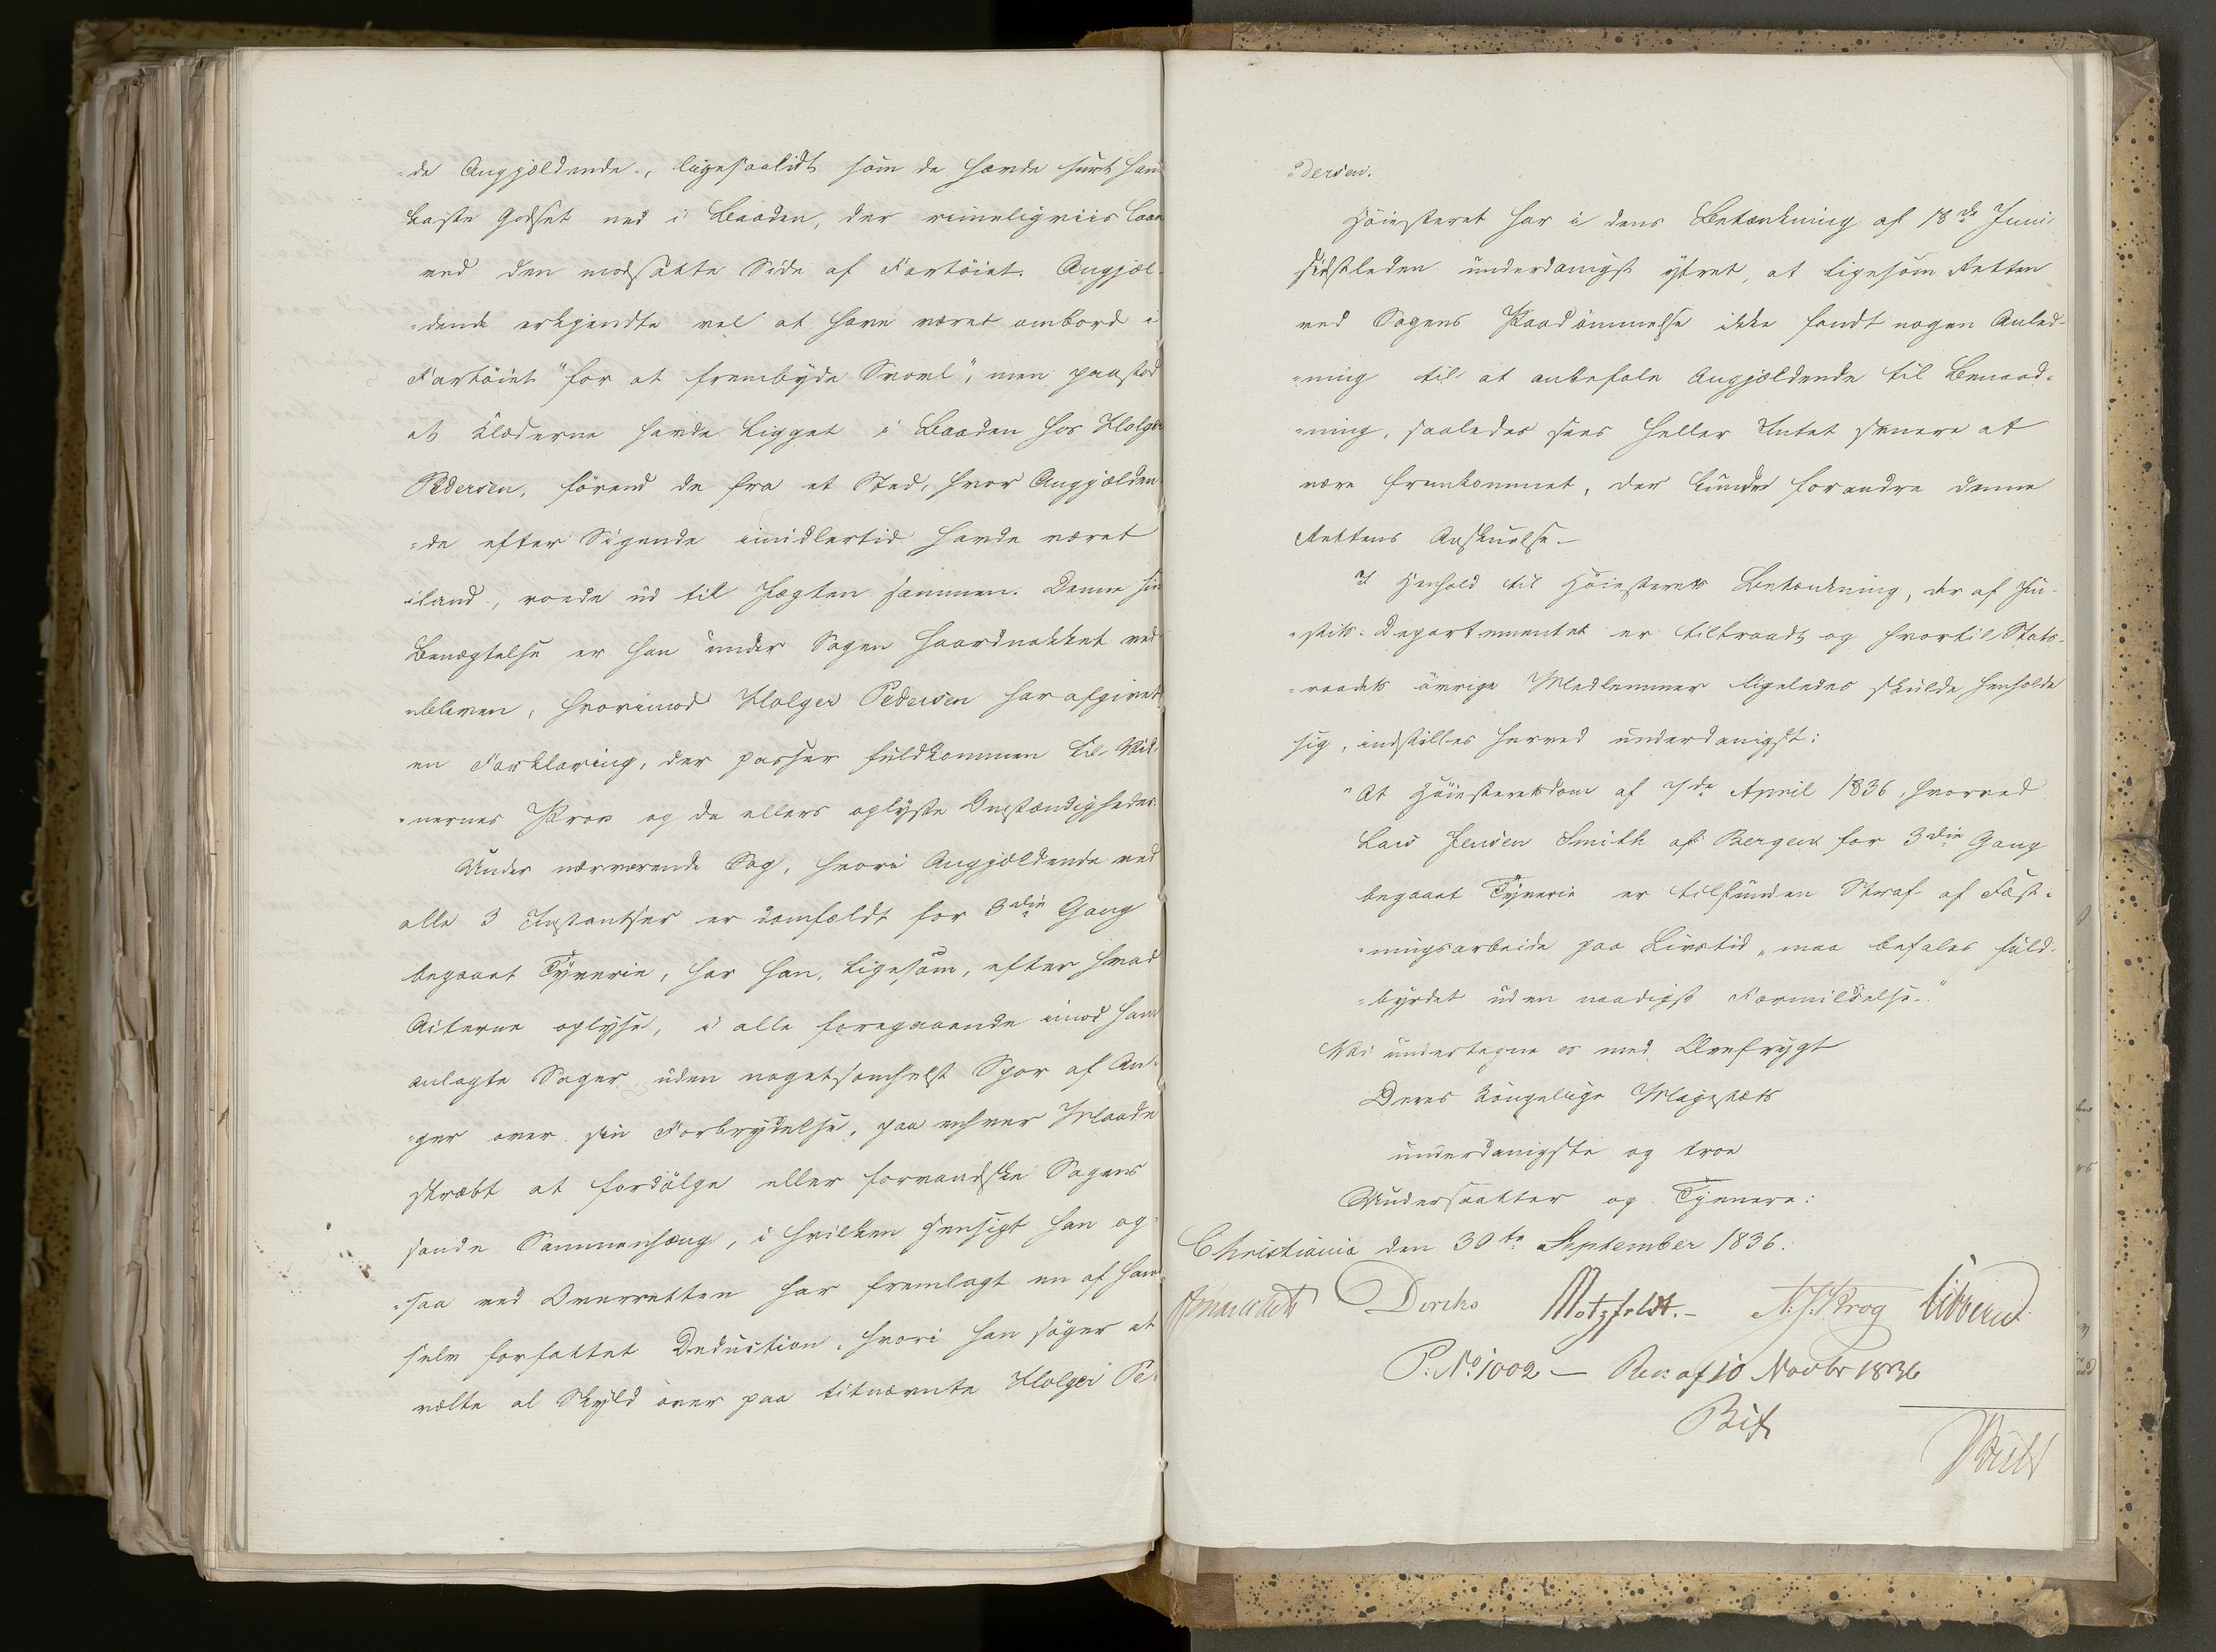 -de Angjældende, ligesaalidt som de havde hørt ham
kaste Godset ned i Baaden, der rimeligviis laae
ved den modsatte Side af Fartöiet. Angjæl-
-dende erkjendte vel at have været ombord i
Fartöiet "for at frembyde Svovl", men paastod
at Klæderne havde ligget i Baaden hos Holger
Pedersen, förend de fra et Sted, hvor Angjælden-
-de efter Sigende imidlertid havde været
iland, roede ud til Jægten sammen. Denne sin
Benægtelse er han under Sagen haardnakket ved-
-bleven, hvorimod Holger Pedersen har afgivet
en Forklaring, der passer fuldkommen til Vid-
-nernes Prov og de ellers oplyste Omstændigheder.
Under nærværende Sag, hvori Angjældende ved
alle 3 Instantser er domfældt for 3die Gang
begaaet Tyverie, har han, ligesom, efter hvad
Acterne oplyse, i alle foregaaende imod ham
anlagte Sager uden nogetsomhelst Spor af An-
-ger over sin Forbrydelse, paa enhver Maade
stræbt at fordölge eller forvandske Sagens
sande Sammenhæng, i hvilken Hensigt han og-
-saa ved Overretten har fremlagt en af ham
selv forfattet Deduction, hvori han söger at
vælte al Skyld over paa titnævnte Holger Pe-
-dersen.
Höiesteret har i dens Betænkning af 18de Juni
sidstleden underdanigst ytret, at ligesom Retten
ved Sagens Paadömmelse ikke fandt nogen Anled-
-ning til at anbefale Angjældende til Benaad-
-ning, saaledes sees heller Intet senere at
være fremkommet, der kunde forandre denne
Rettens Anskuelse.-
I Henhold til Höiesterets Betænkning, der af Ju-
-stits-Departementet er tiltraadt og hvortil Stats-
-raadets övrige Medlemmer ligeledes skulde henholde
sig, indstilles herved underdanigst:
"At Höiesteretsdom af 7de April 1836, hvorved
Lars Jensen Smith af Bergen for 3die Gang
begaaet Tyverie er tilfunden Straf af Fæst-
-ningsarbeide paa Livstid, maa befales fuld-
-byrdet uden naadigst Formildelse."
Vi undertegne os med Ærefrygt
Deres Kongelige Majestæts
underdanigste og troe
Undersaatter og Tjenere:
Christiania den 30te September 1836.
Diriks Motzfeldt.- N. J. Krog Vibe
P: No 1002 — Res: af 10 Novbr 1836